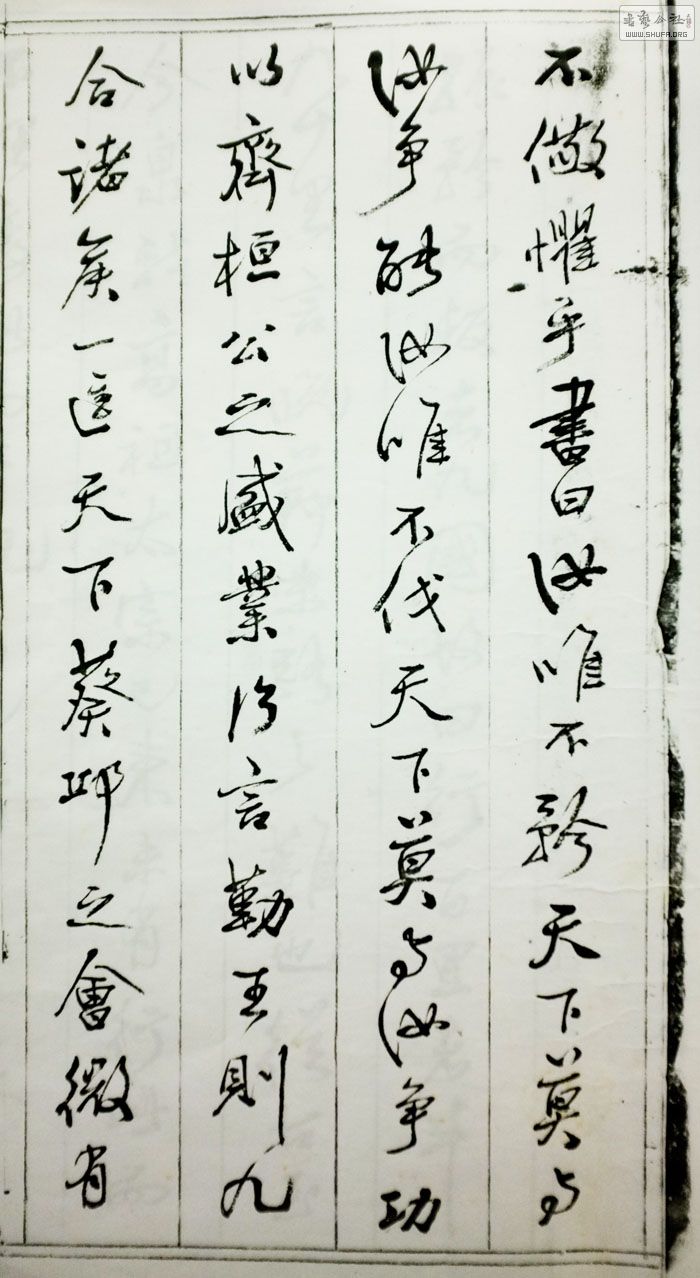 不儆懼乎書曰汝唯不矜天下莫与
汝争能汝唯不伐天下莫与汝争功
以齊桓公之盛業片言勤王則九
合諸侯一匡天下葵邱之會微有
書藝公社
WWW.SHUFA.ORG